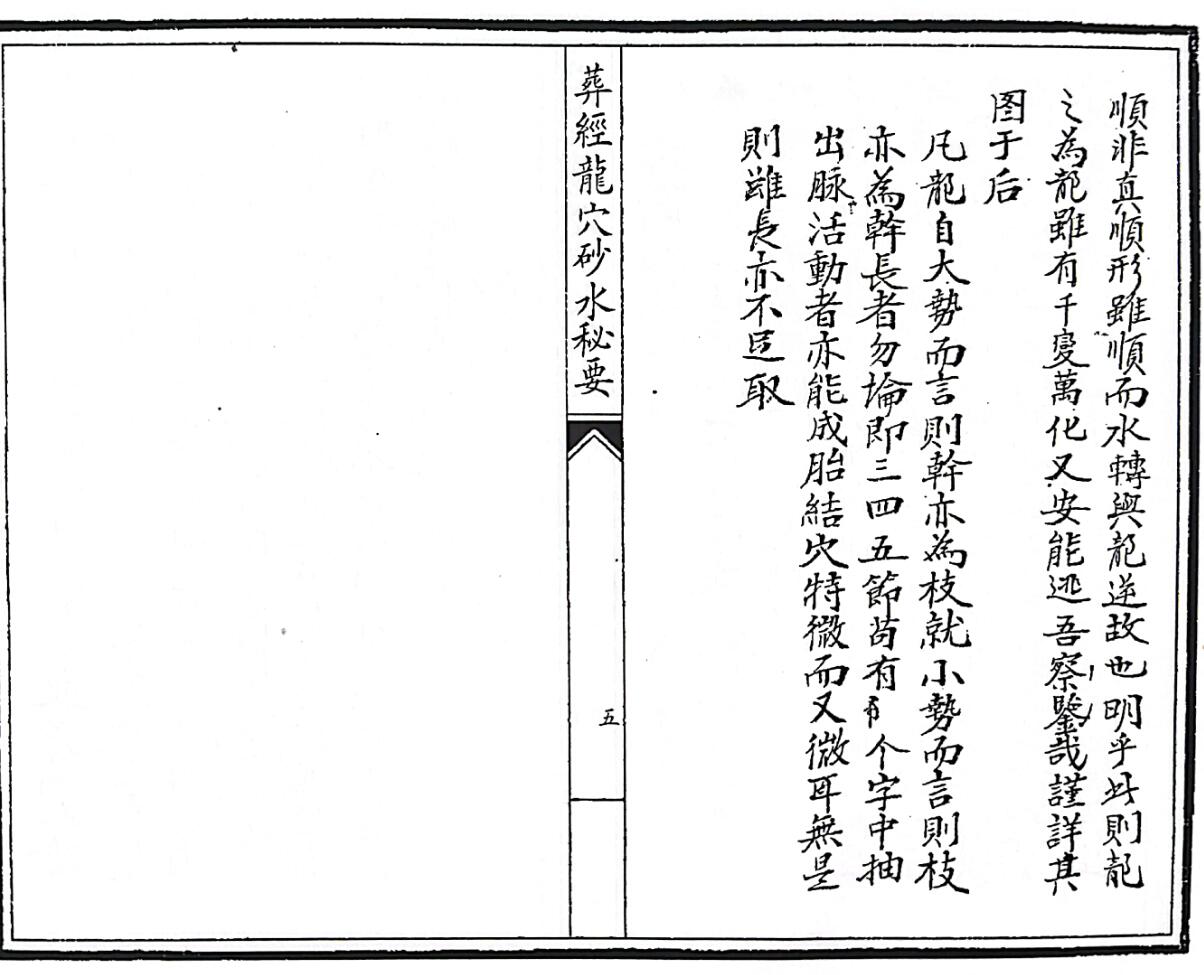 順非真順形雖順而水轉與龍逆故也明乎此則龍
之為龍雖有千變萬化又安能逃吾察鑒哉謹詳其
图于后
凡龍自大勢而言則幹亦為枝就小勢而言則枝
亦為幹長者勿論即三四五節苟有个字中抽
出脉活動者亦能成胎結穴特微而又微耳無是
則雖長亦不足取
葬經龍穴砂水秘要
五